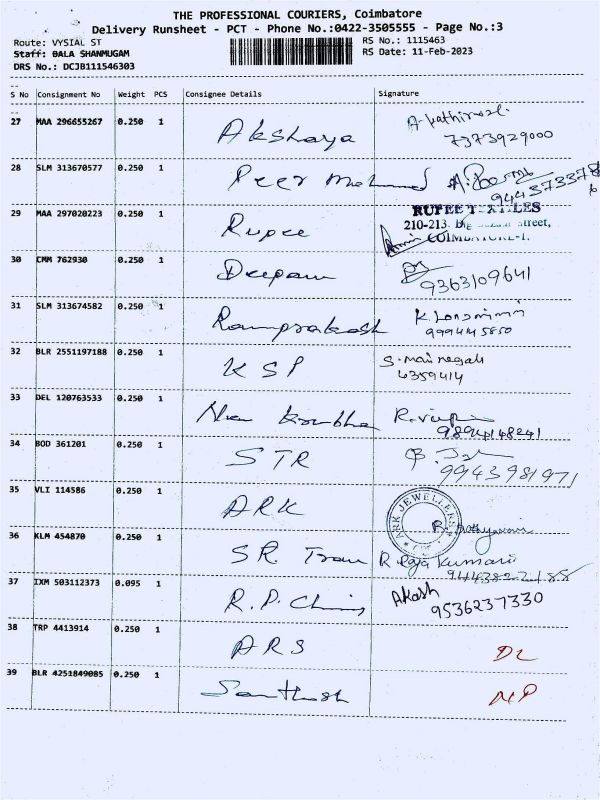 THE PROFESSIONAL COURIERS, Coimbatore
Delivery Runsheet - PCT - Phone No.:0422-3505555 - Page No.:3
Route: VYSIAL ST RS No.: 1115463
Staff: BALA SHANMUGAM RS Date: 11-Feb-2023
DRS No.: DCJB111546303
S No Consignment No Weight PCS Consignee Details Signature
27 MAA 296655267 0.250 1 Akshaya
7373929000
28 SLM 313670577 0.250 1 Peer Mohamed
29 MAA 297020223 0.250 1 Rupee RUPEE
210-213, Big Street,
COIMBATORE-1.
30 CMM 762930 0.250 1 Deepam
9363109641
31 SLM 313674582 0.250 1 Ramprakash
32 BLR 2551197188 0.250 1 KSP
6359414
33 DEL 120763533 0.250 1
9894148241
34 BOD 361201 0.250 1 STR
9943981971
35 VLI 114586 0.250 1 ARK ARK JEWELLERS
36 KLM 454870 0.250 1 SR R Raja Kumari
37 IXM 503112373 0.095 1 R.P. Akash
9536237330
38 TRP 4413914 0.250 1 ARS DL
39 BLR 4251849085 0.250 1 Santhosh NP